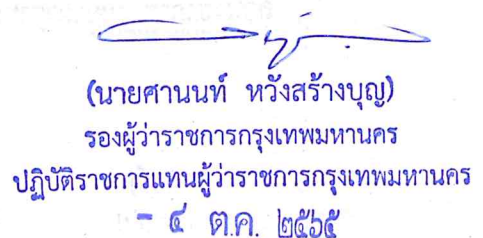 (นายศานนท์ หวังสร้างบุญ)
รองผู้ว่าราชการกรุงเทพมหานคร
ปฏิบัติราชการแทนผู้ว่าราชการกรุงเทพมหานคร
- ๔ ต.ค. ๒๕๖๕